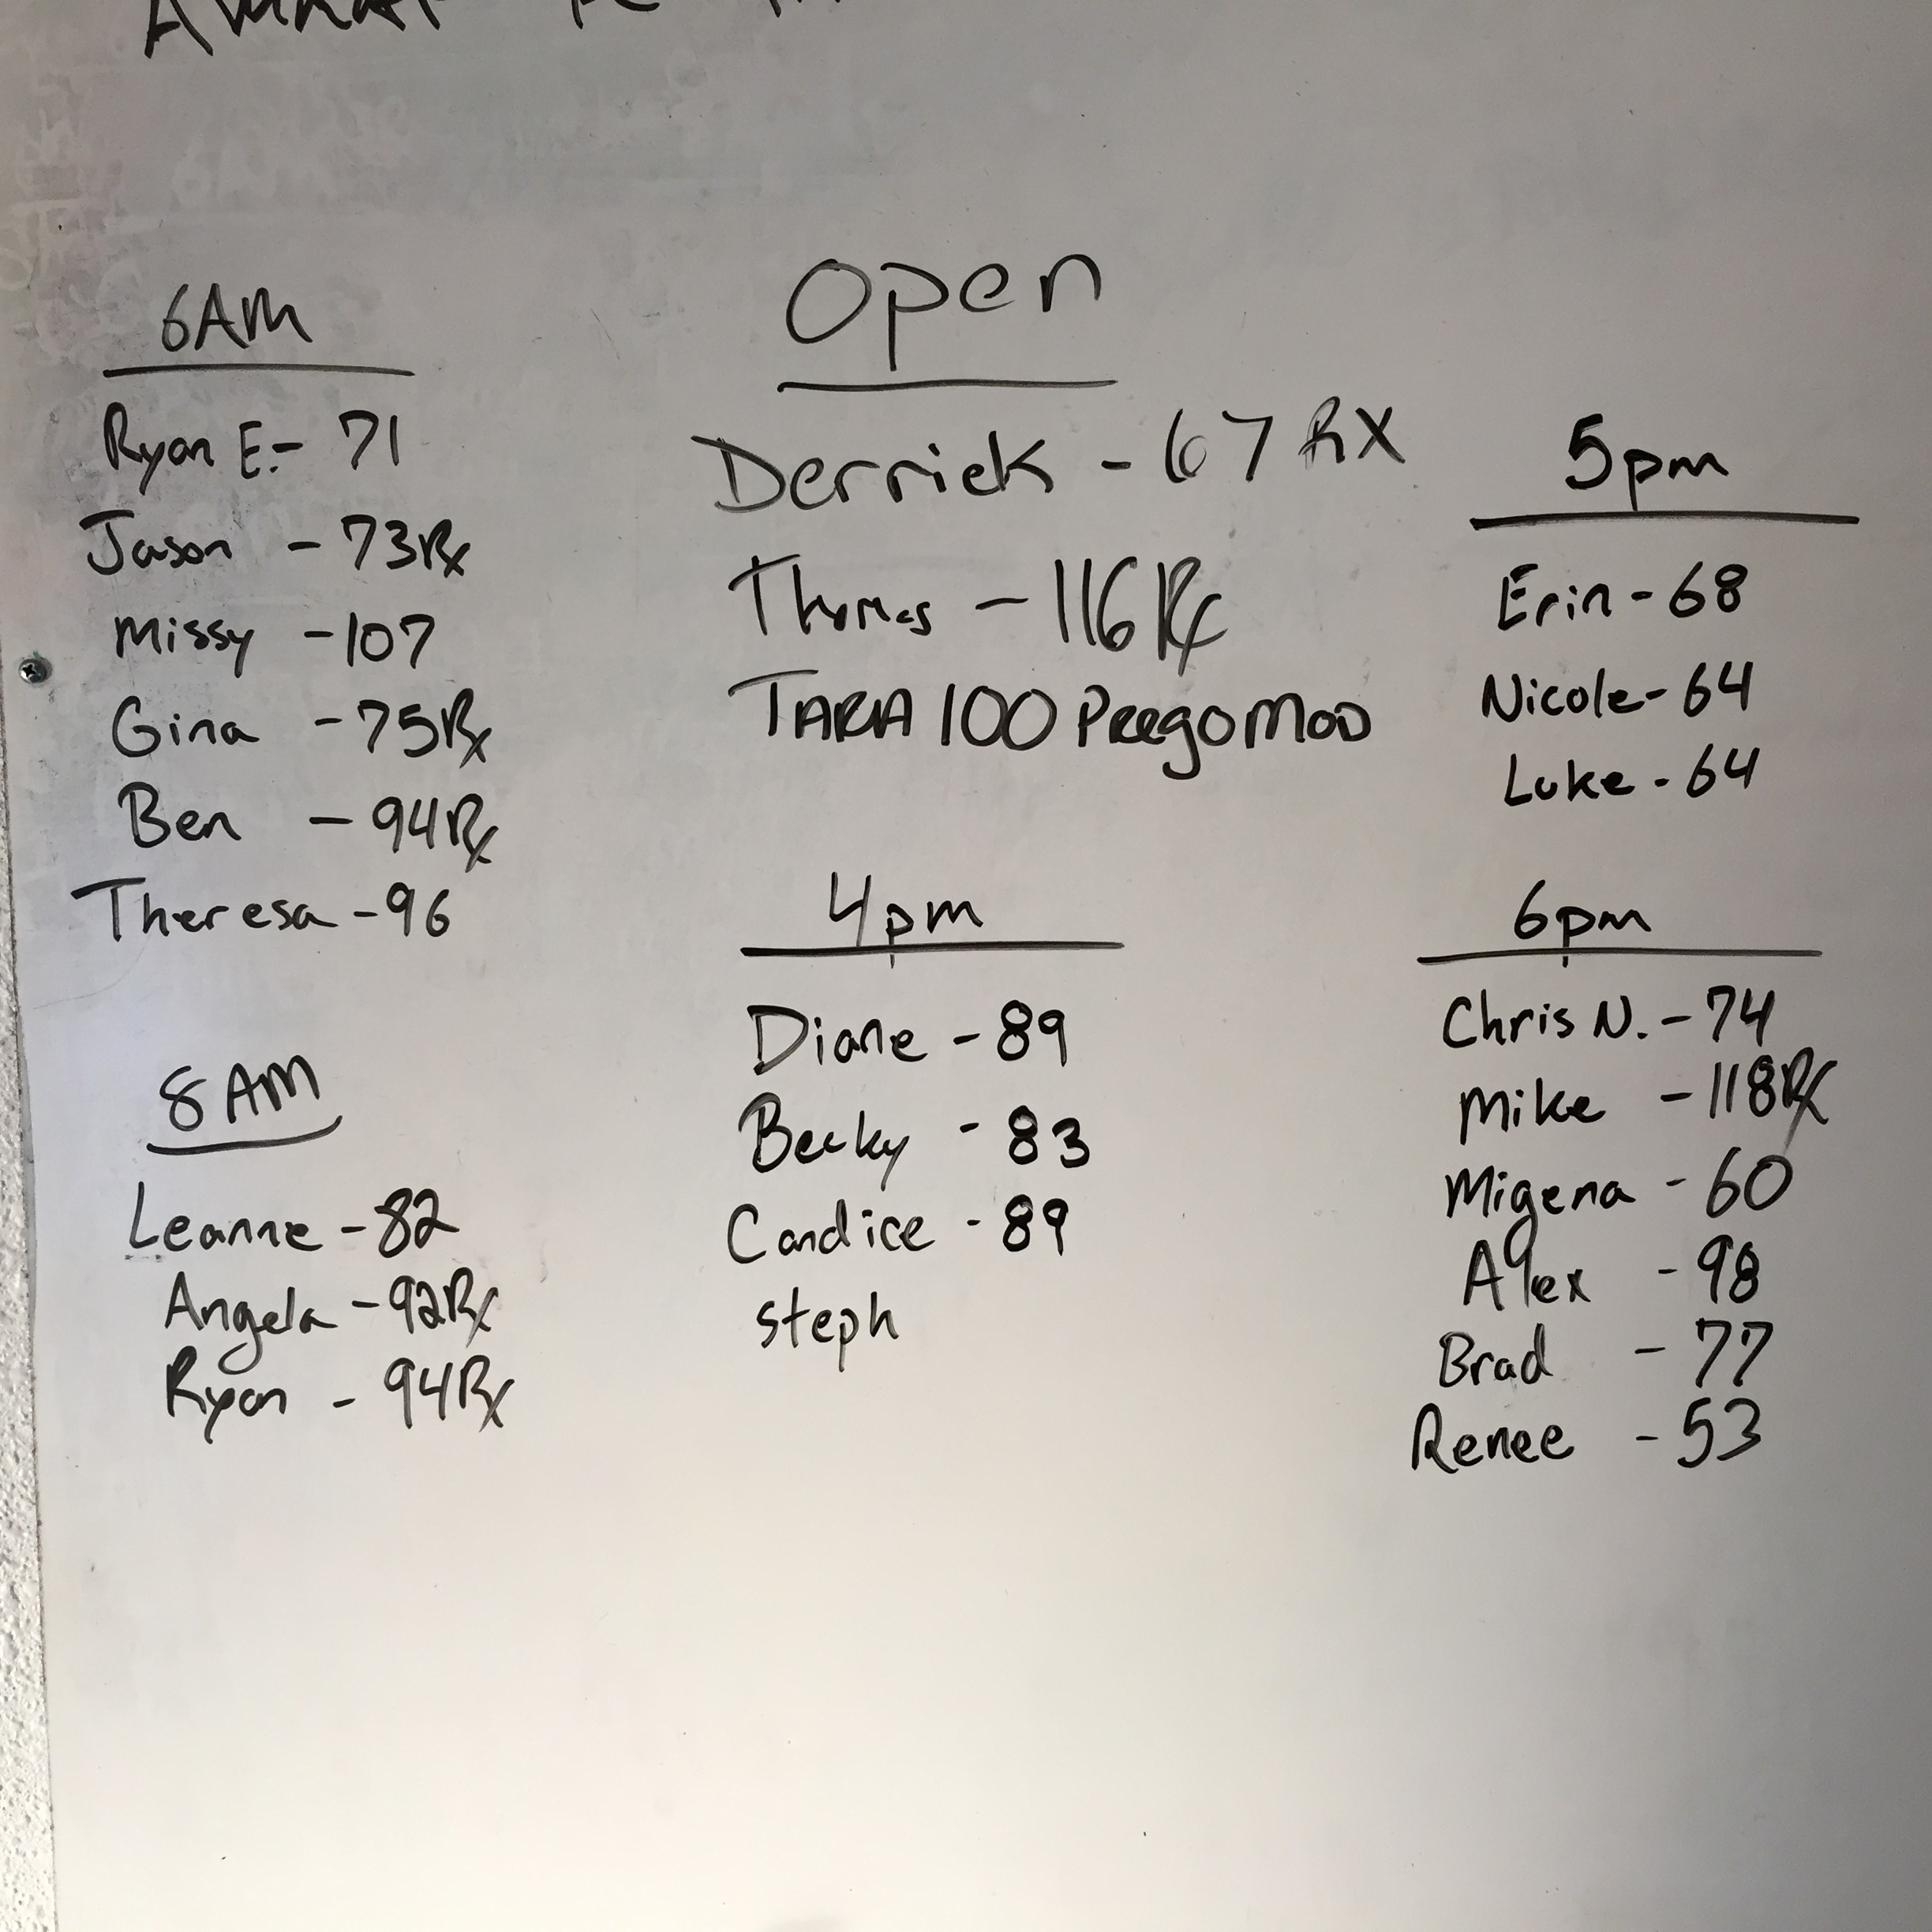 6AM
Ryan E.- 71
Jason - 73Rx
Missy - 107
Gina - 75Rx
Ben - 94Rx
Theresa - 96
8AM
Leanne - 82
Angela - 92Rx
Ryan - 94Rx
Open
Derrick - 67 RX
Thomas - 116 Rx
TARA 100 PREGO MOD
4pm
Diane - 89
Becky - 83
Candice - 89
steph
5pm
Erin - 68
Nicole - 64
Luke - 64
6pm
Chris N. - 74
Mike - 118Rx
Migena - 60
Alex - 98
Brad - 77
Renee - 53